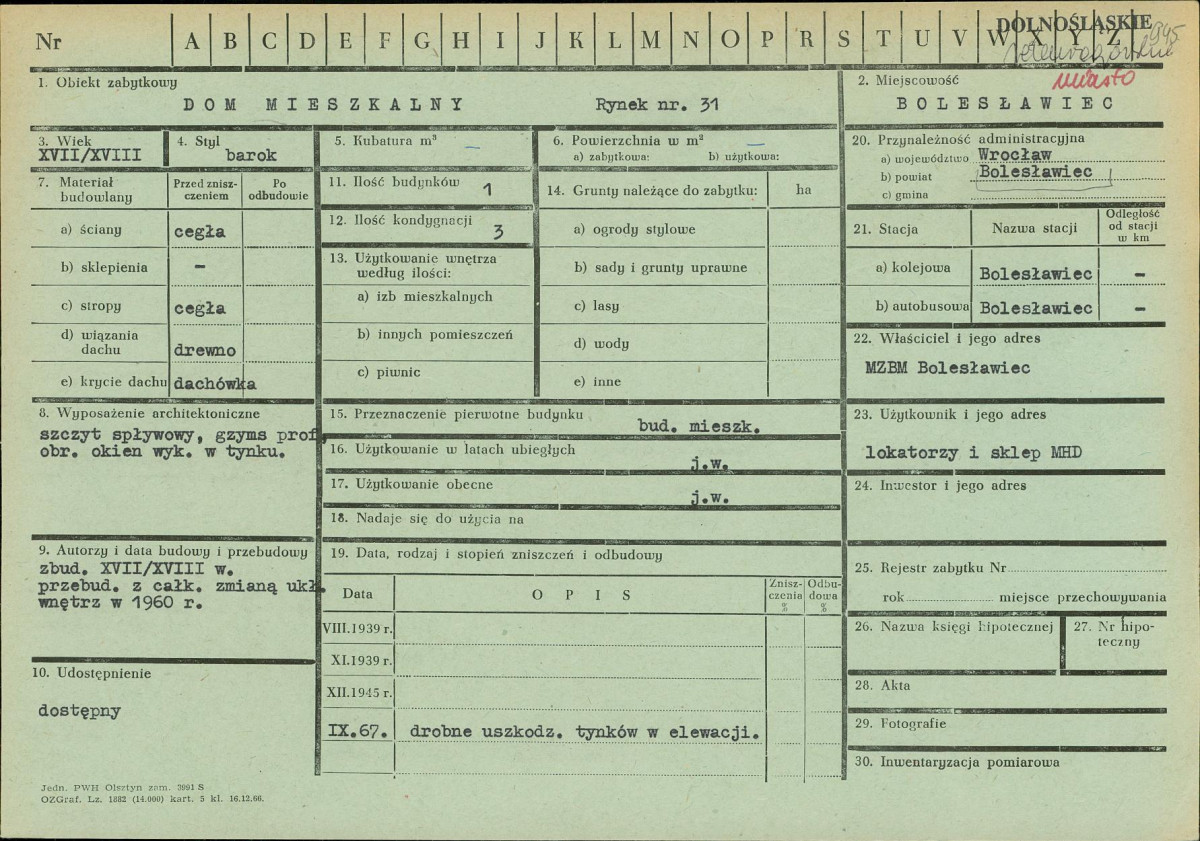 DOLNOŚLĄSKIE
Nr A B C D E F G H I J K L M N O P R S T U V W X Y Z
miasto
1. Obiekt zabytkowy
DOM MIESZKALNY Rynek nr. 31
2. Miejscowość
BOLESŁAWIEC
3. Wiek
XVII/XVIII
4. Styl
barok
5. Kubatura m³ —
6. Powierzchnia w m² —
a) zabytkowa: b) użytkowa:
20. Przynależność administracyjna
a) województwo Wrocław
b) powiat Bolesławiec
c) gmina
7. Materiał budowlany
Przed zniszczeniem
Po odbudowie
a) ściany cegła
b) sklepienia -
c) stropy cegła
d) wiązania dachu drewno
e) krycie dachu dachówka
11. Ilość budynków 1
12. Ilość kondygnacji 3
13. Użytkowanie wnętrza
według ilości:
a) izb mieszkalnych
b) innych pomieszczeń
c) piwnic
14. Grunty należące do zabytku: ha
a) ogrody stylowe
b) sady i grunty uprawne
c) lasy
d) wody
e) inne
21. Stacja Nazwa stacji Odległość od stacji w km
a) kolejowa Bolesławiec -
b) autobusowa Bolesławiec -
22. Właściciel i jego adres
MZBM Bolesławiec
8. Wyposażenie architektoniczne
szczyt spływowy, gzyms prof,
obr. okien wyk. w tynku.
15. Przeznaczenie pierwotne budynku
bud. mieszk.
16. Użytkowanie w latach ubiegłych
j.w.
17. Użytkowanie obecne
j.w.
18. Nadaje się do użycia na
23. Użytkownik i jego adres
lokatorzy i sklep MHD
24. Inwestor i jego adres
9. Autorzy i data budowy i przebudowy
zbud. XVII/XVIII w.
przebud. z całk. zmianą ukł.
wnętrz w 1960 r.
19. Data, rodzaj i stopień zniszczeń i odbudowy
Data OPIS Zniszczenia % Odbudowa %
VIII.1939 r.
XI.1939 r.
XII.1945 r.
IX.67. drobne uszkodz. tynków w elewacji.
25. Rejestr zabytku Nr
rok miejsce przechowywania
26. Nazwa księgi hipotecznej
27. Nr hipoteczny
28. Akta
29. Fotografie
30. Inwentaryzacja pomiarowa
10. Udostępnienie
dostępny
Jedn. PWH Olsztyn zam. 3991 S
OZGraf. Lz. 1882 (14.000) kart. 5 kl. 16.12.66.